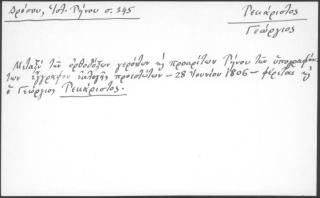 Δρόσου, Ἱστ. Τήνου σ. 345
Ρεκάριστος
Γεώργιος
Μεταξὺ τῶν ὀρθοδόξων γερόντων κ̀ προκρίτων Τήνου τῶν ὑπογραψάν-
των ἔγγραφον ἐκλογῆς προεστώτων - 28 Ἰουνίου 1806 - φέρεται κ̀
ὁ Γεώργιος Ρεκάριστος.